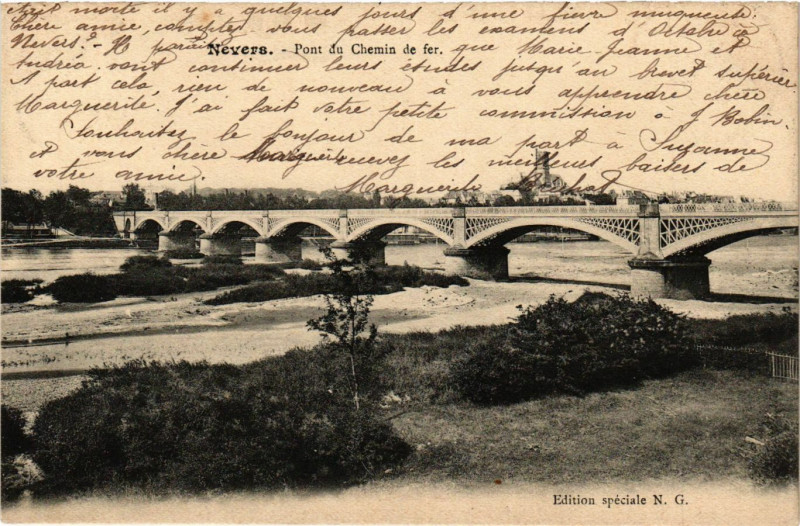 était morte il y a quelques jours d'une fièvre muqueuse.
Chère amie, comptez-vous passer les examens d'Octobre à
Nevers? - Il paraît que Marie-Jeanne et
Nevers. - Pont du Chemin de fer.
Andréa vont continuer leurs études jusqu'au brevet supérieur
A part cela, rien de nouveau à vous apprendre chère
Marguerite. J'ai fait votre petite commission à J Bobin.
Souhaitez le bonjour de ma part à Suzanne
et vous chère recevez les meilleurs baisers de
votre amie. Marguerite
Edition spéciale N. G.